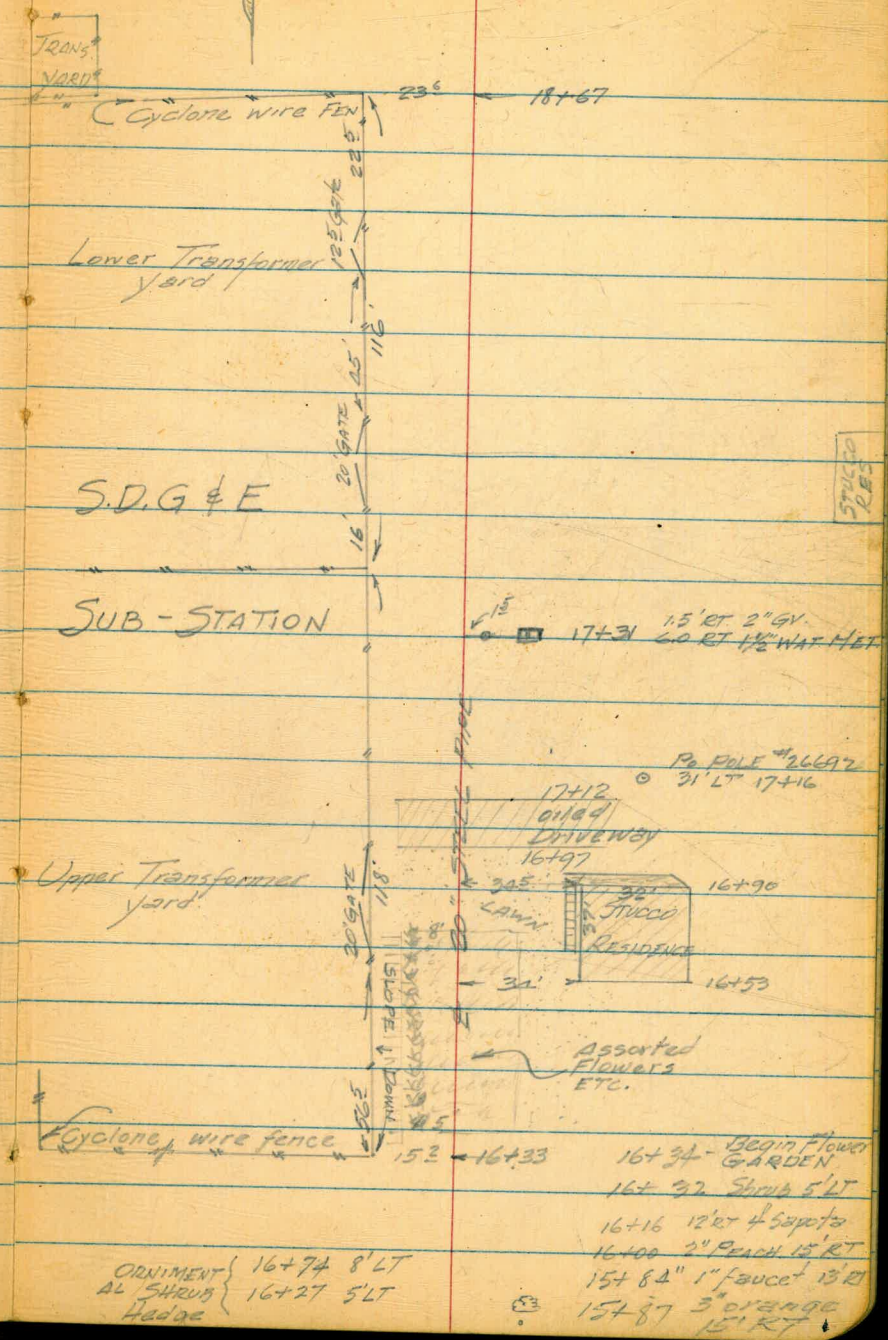 TRANS
YARD
Cyclone wire FEN
23⁶
18+67
22⁵
12⁵ Gate
Lower Transformer
Yard
116'
45'
20' GATE
S.D.G & E
16'
STUCCO
RES
SUB-STATION
1⁵
17+31
1.5' RT. 2" GV.
6.0 RT 1½" WAT MET
STEEL PIPE
Po POLE #26692
31' LT 17+16
17+12
oiled
Driveway
16+97
Upper Transformer
yard
20' GATE
118'
34⁵
LAWN
32'
37'
STUCCO
RESIDENCE
16+90
34'
16+53
SLOPE DOWN
Assorted
Flowers
ETC.
56⁵
Cyclone wire fence
15²
16+33
16+34 - Begin Flower
GARDEN
16+32 Shrub 5' LT
16+16 12' RT 4" Sapota
16+00 2" PEACH 15' RT
15+84" 1" faucet 13' RT
15+87 3" orange
15' RT
ORNIMENT
AL SHRUB
Hedge
16+74 8' LT
16+27 5' LT
53